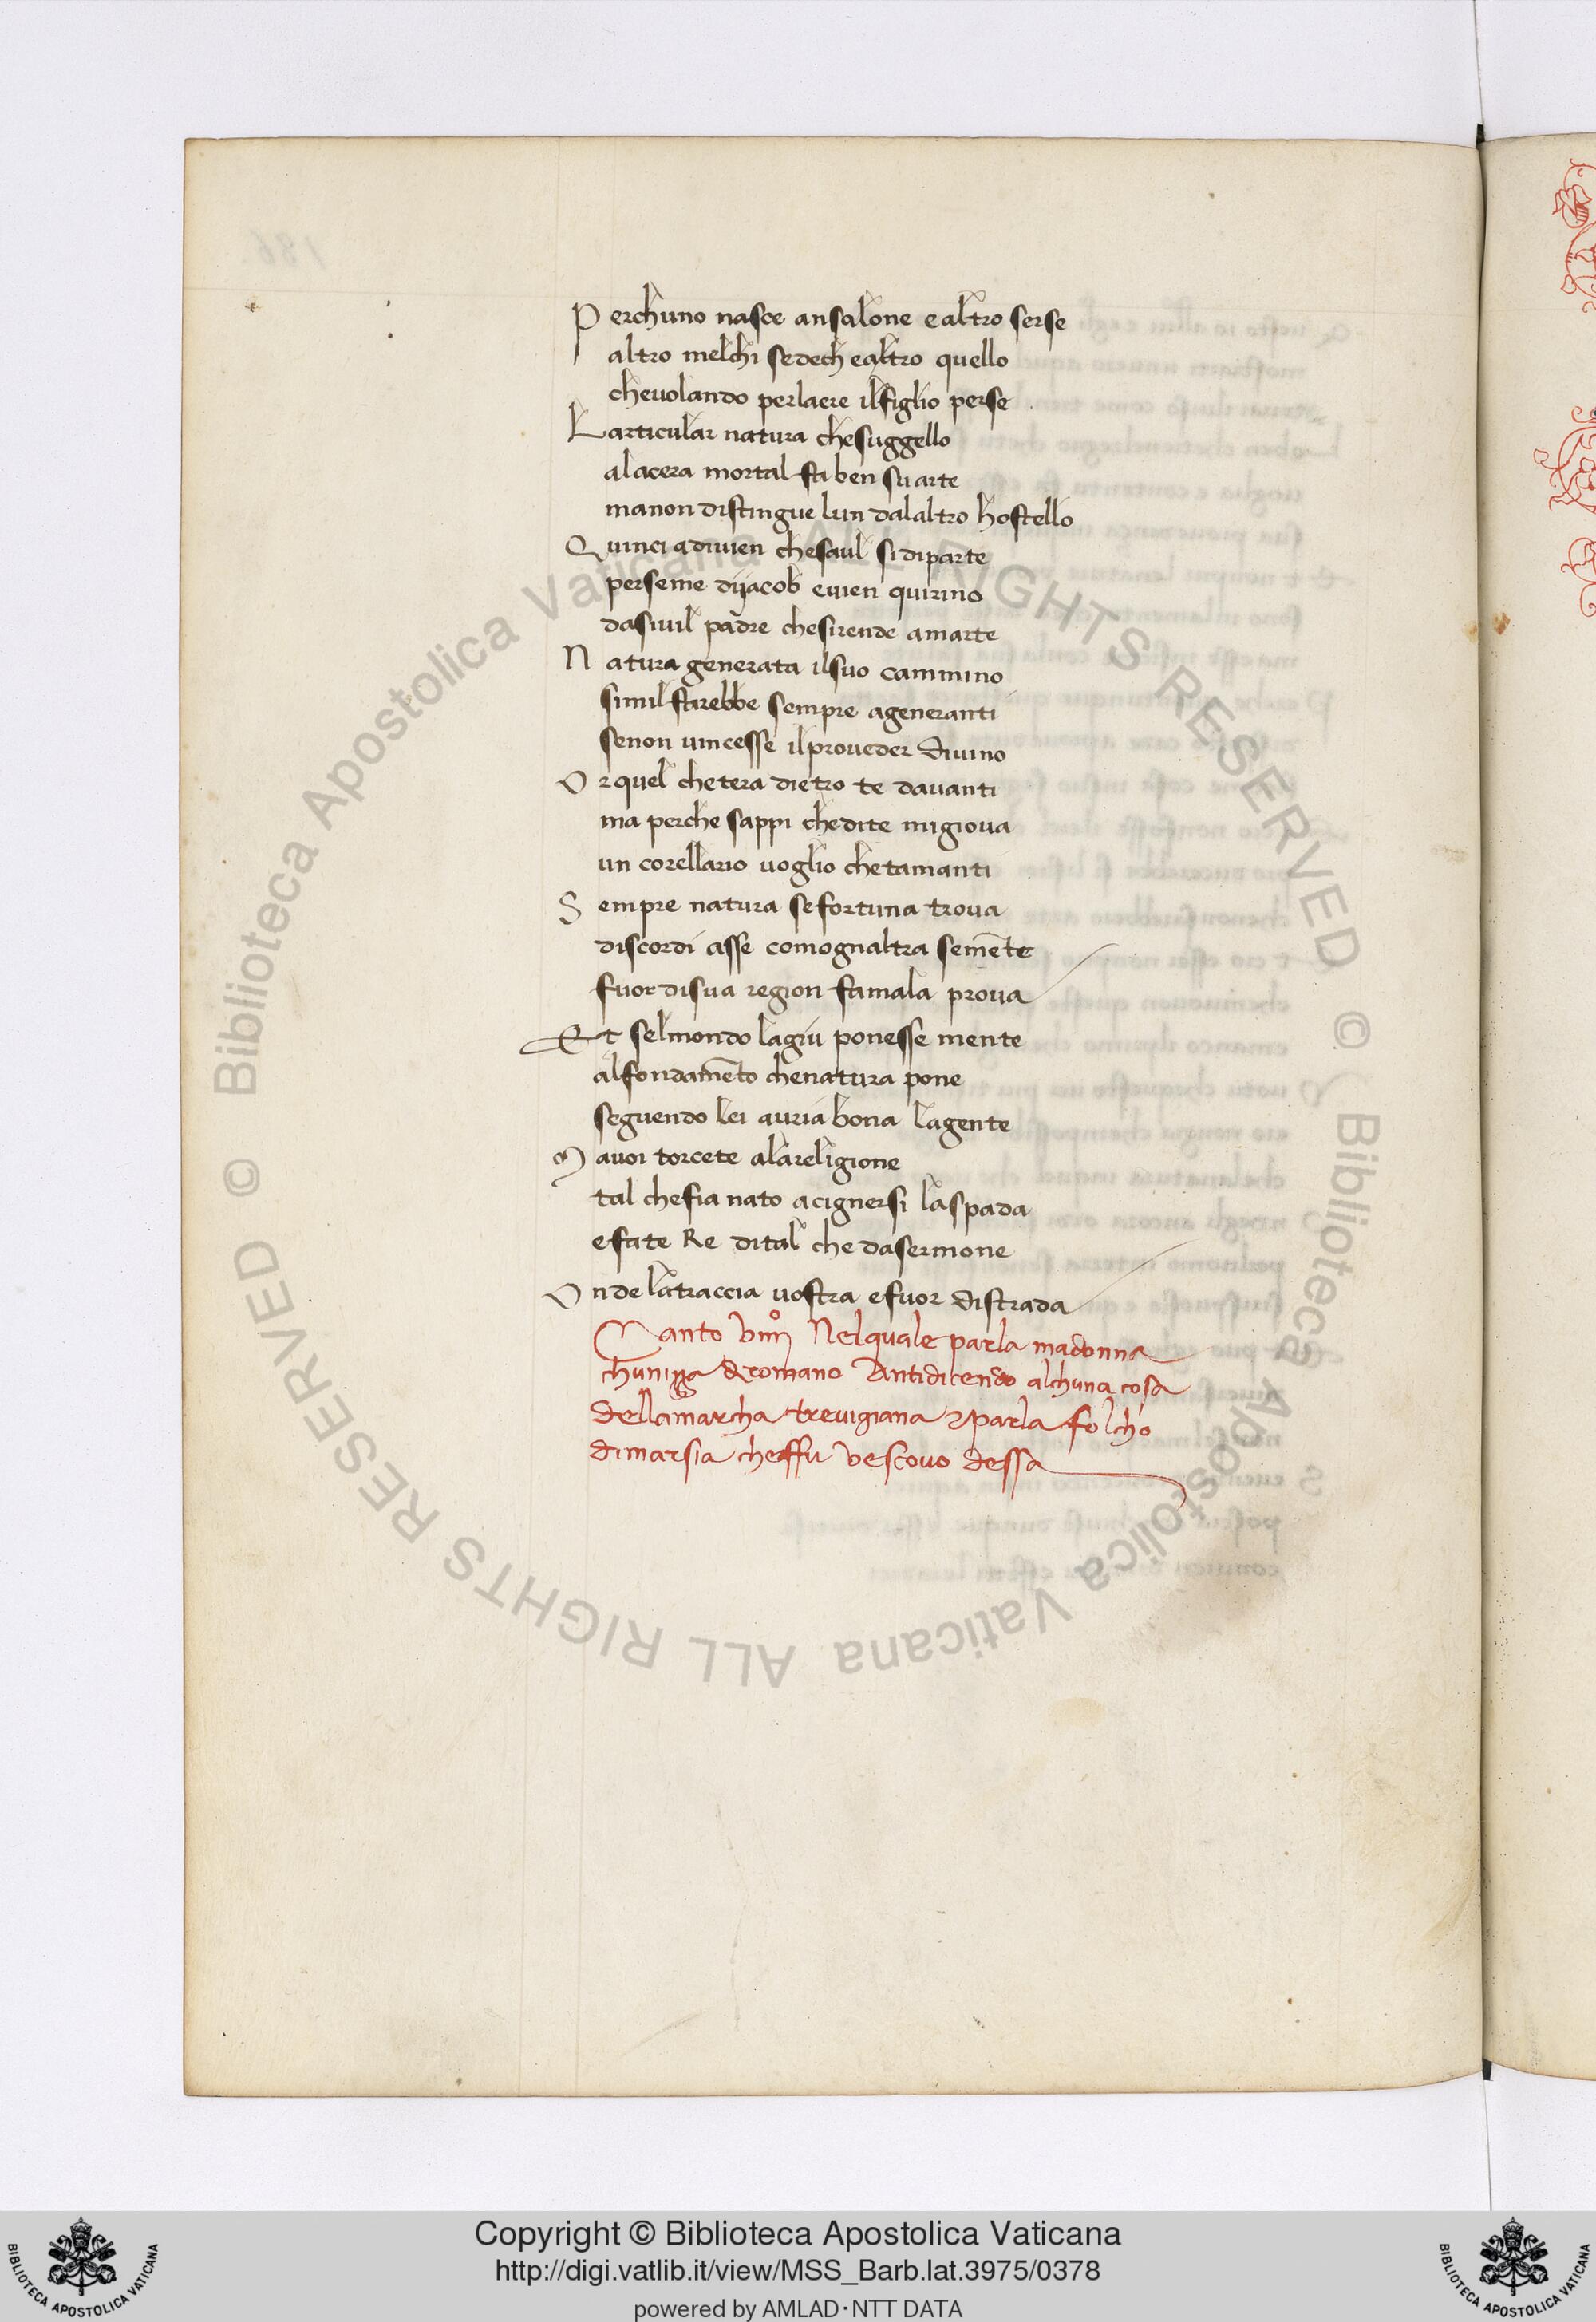 Perchuno nasce ansalone ealtro serse
altro melchi sedech ealtro quello
cheuolando perlaere ilfiglio perse
Larticular natura chesuggello
alacera mortal fa ben suarte
manon distingue lun dalaltro hostello
Quinci adiuien chesaul sidiparte
perseme dijacob euien quirino
dasiuil padre chesirende amarte
Natura generata ilsuo cammino
simil farebbe sempre ageneranti
senon uincesse ilproueder diuino
Or quel chetera dietro te dauanti
ma perche sappi chedite migioua
un corellario uoglio chetamanti
Sempre natura sefortuna troua
discordi asse comognaltra semēte
fuor disua region famala proua
Et selmondo lagiu ponesse mente
alfondamēto chenatura pone
seguendo lei auria bona lagente
Mauoi torcete alareligione
tal chefia nato acignersi laspada
efate Re dital che dasermone
Onde latraccia uostra efuor distrada
Canto viiijº Nelquale parla madonna
chuniza deromano Antidicendo alchuna cosa
dellamarcha treuigiana 7parla folcho
dimarsia cheffu vescouo dessa
© Biblioteca Apostolica Vaticana ALL RIGHTS RESERVED © Biblioteca Apostolica Vaticana ALL RIGHTS RESERVED
Copyright © Biblioteca Apostolica Vaticana
http://digi.vatlib.it/view/MSS_Barb.lat.3975/0378
powered by AMLAD·NTT DATA
BIBLIOTECA APOSTOLICA VATICANA
BIBLIOTECA APOSTOLICA VATICANA